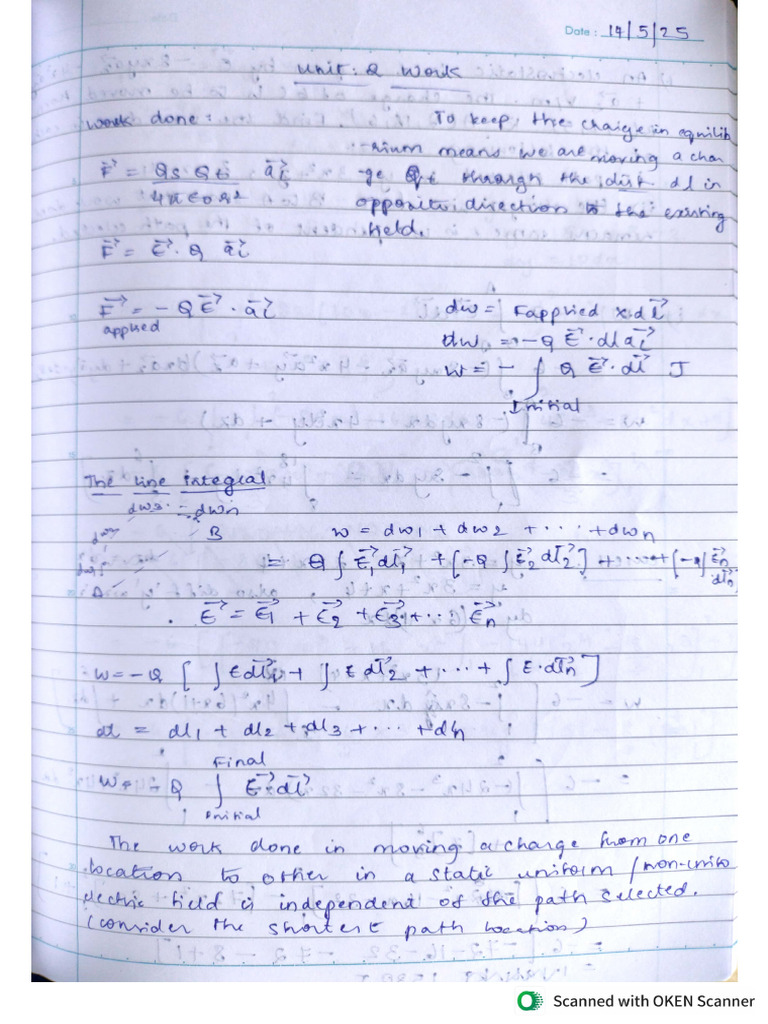 Date : 14/5/25
Unit: 2 Work
Work done : To keep the charge in equilib
-rium means we are moving a char
F⃗ = Qs Qt / 4πε0 r² a⃗l ge Qt through the dist dl in
opposite direction to the existing
field.
F⃗ = E⃗ . Q a⃗l
F⃗ applied = - Q E⃗ . a⃗l dw = Fapplied x dl⃗
dw = -Q E⃗ . dl a⃗l
w = - ∫ Q E⃗ . dl⃗ J
Initial
The line integral
dw3 = dwn
B w = dw1 + dw2 + ... + dwn
A = Q ∫ E⃗1 dl⃗1 + [-Q ∫ E⃗2 dl⃗2] + ...... + [-Q ∫ E⃗n dl⃗n
E⃗ = E⃗1 + E⃗2 + E⃗3 + ... E⃗n
w = -Q [ ∫ E dl⃗1 + ∫ E dl⃗2 + ... + ∫ E . dl⃗n ]
dl = dl1 + dl2 + dl3 + ... + dln
Final
W = - Q ∫ E⃗ dl⃗
initial
The work done in moving a charge from one
location to other in a static uniform / non-unifo
electric field is independent of the path selected.
(consider the shortest path location)
Scanned with OKEN Scanner